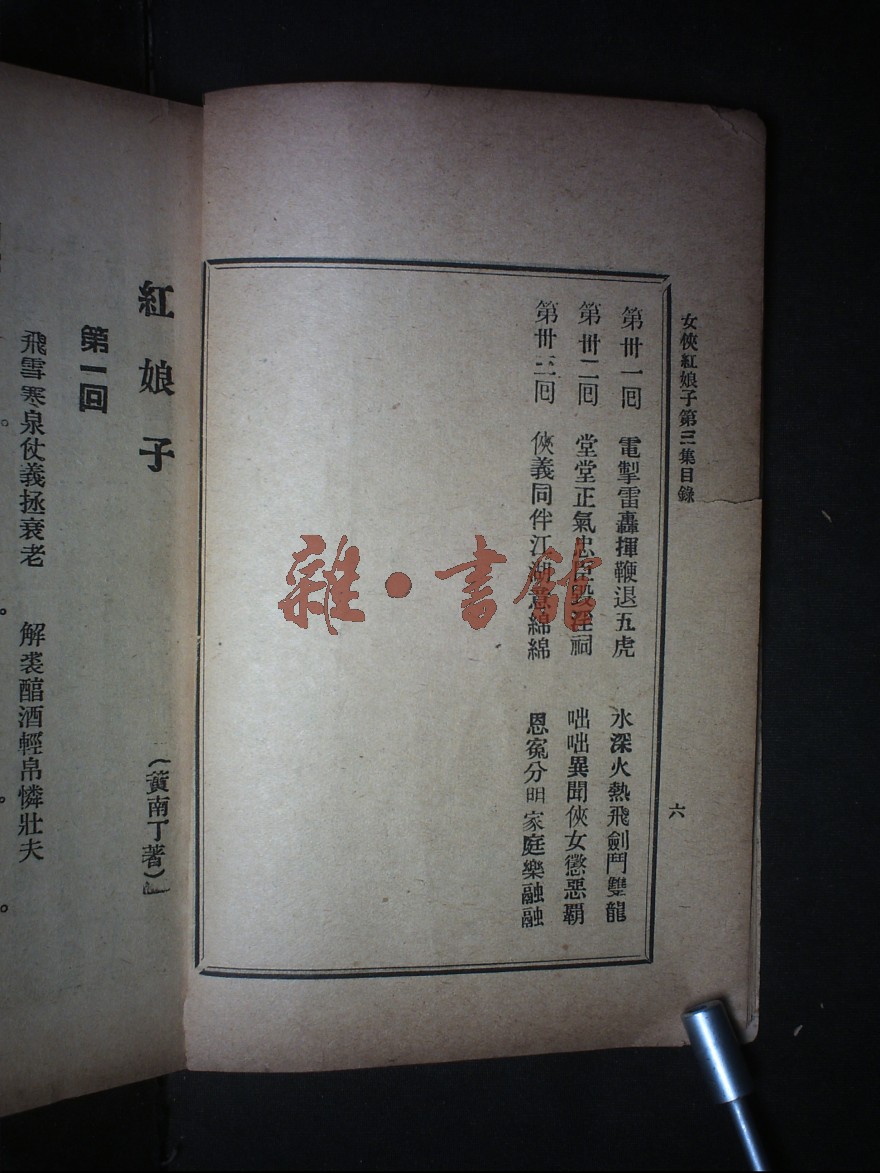 女俠紅娘子第三集目錄
六
第卅一回 電掣雷轟揮鞭退五虎 水深火熱飛劍鬥雙龍
第卅二回 堂堂正氣忠臣毀淫祠 咄咄異聞俠女懲惡覇
第卅三回 俠義同伴江湖意綿綿 恩寃分明家庭樂融融
雜·書館
紅娘子
(黃南丁著)
第一回
飛雪寒泉仗義拯衰老。 解裘醅酒輕帛憐壯夫。